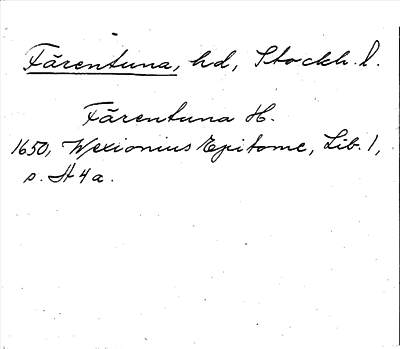 Färentuna, hd, Stockh. l.
Färentuna H.
1650, Wexionius Epitome, Lib. 1,
s. H 4 a.